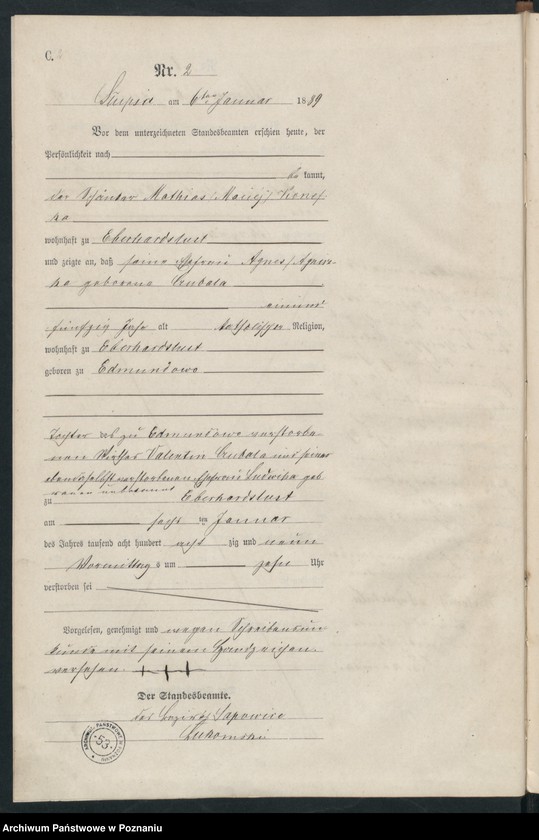 C.
Nr. 2
Slupia am 6ten Januar 1889
Vor dem unterzeichneten Standesbeamten erschien heute, der
Persönlichkeit nach
be kannt,
der Mathias /: Maciej /
ka
wohnhaft zu Eberhardslust
und zeigte an, daß seine Ehefrau Agnes / Agnis-
ka geborene Cubala
einund
fünfzig Jahr alt katholischer Religion,
wohnhaft zu Eberhardslust
geboren zu Edmundowo
Tochter des zu Edmundowo verstorbe-
nen Wirthes Valentin Cubala und seiner
daselbst verstorbenen Ehefrau Ludwika geb
unbekannt
zu Eberhardslust
am sechs ten Januar
des Jahres tausend acht hundert acht zig und neun
Vormittag s um zehn Uhr
verstorben sei
Vorgelesen, genehmigt und wegen Schreibensun
kunde mit seinem Handzeichen
versehen. +++
Der Standesbeamte.
Lukomski
ARCHIWUM PAŃSTWOWE W POZNANIU
53
Archiwum Państwowe w Poznaniu